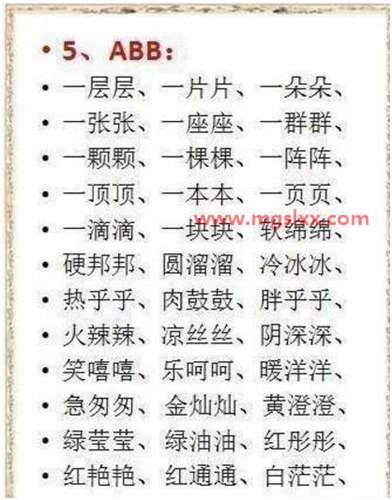 • 5、ABB：
• 一层层、一片片、一朵朵、
• 一张张、一座座、一群群、
• 一颗颗、一棵棵、一阵阵、
• 一顶顶、一本本、一页页、
www.mgslxx.com
• 一滴滴、一块块、软绵绵、
• 硬邦邦、圆溜溜、冷冰冰、
• 热乎乎、肉鼓鼓、胖乎乎、
• 火辣辣、凉丝丝、阴深深、
• 笑嘻嘻、乐呵呵、暖洋洋、
• 急匆匆、金灿灿、黄澄澄、
• 绿莹莹、绿油油、红彤彤、
• 红艳艳、红通通、白茫茫、